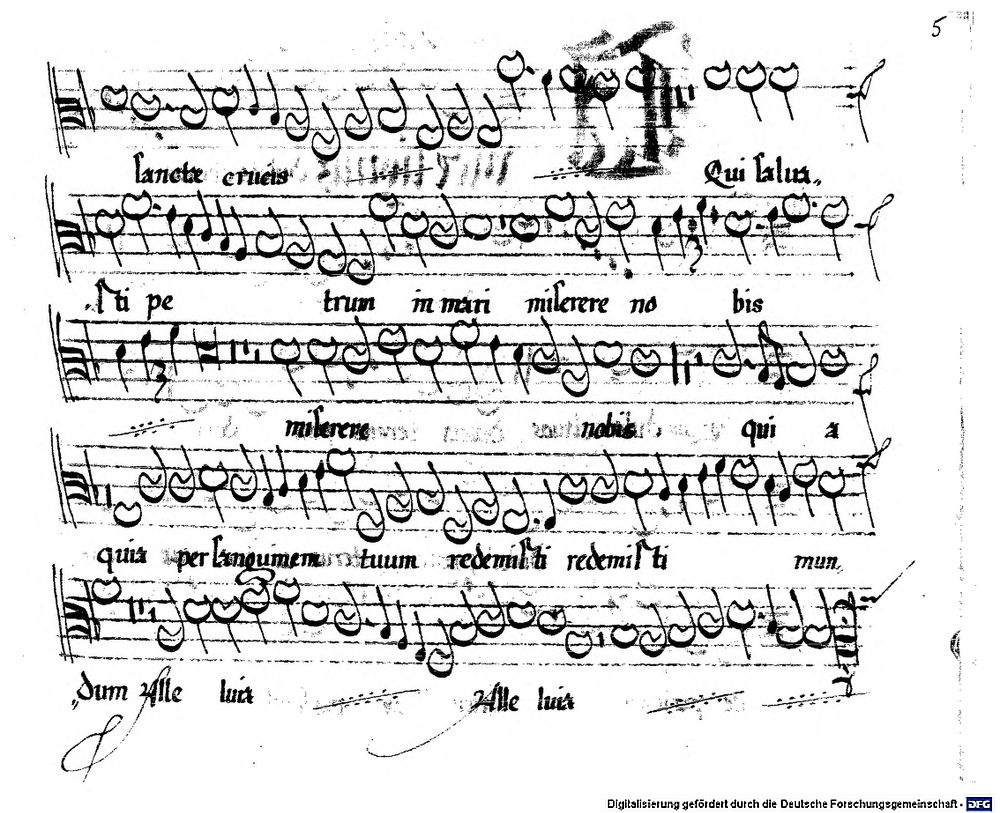 5
sanctæ crucis Qui salua„
sti pe trum in mari miserere no bis
miserere nobis qui a
quia per sanguinem tuum redemisti redemisti mun„
„dum Alle luia Alle luia
Digitalisierung gefördert durch die Deutsche Forschungsgemeinschaft - DFG